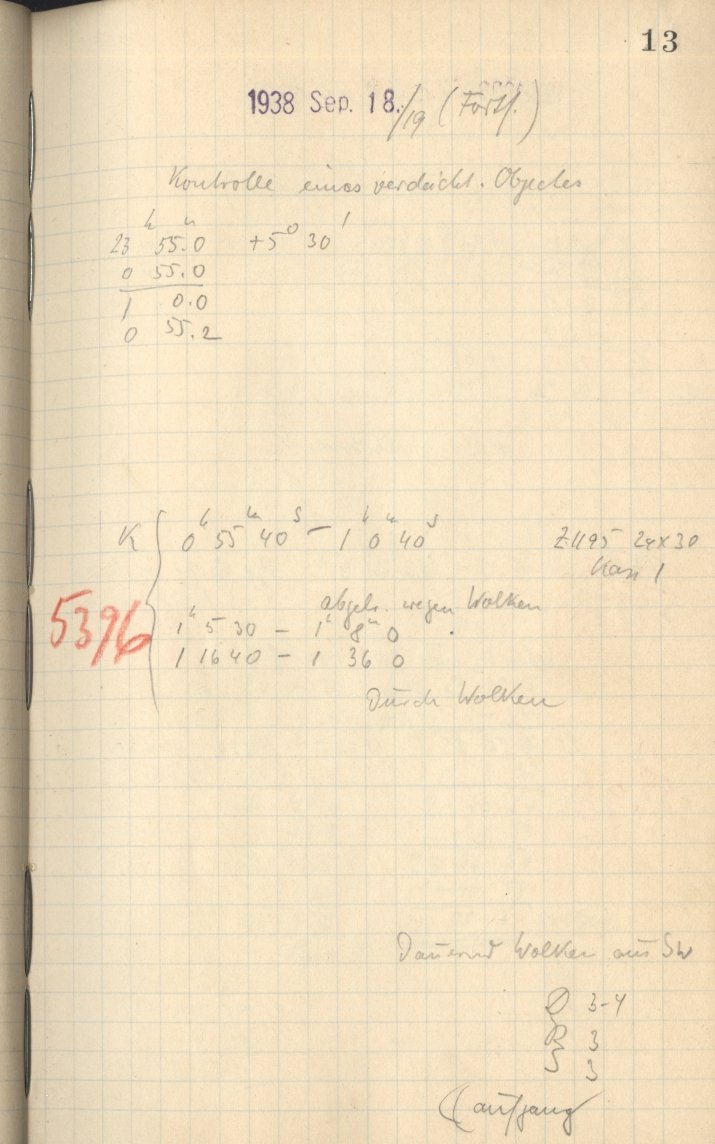 13
1938 Sep. 18./19 (Forts.)
Kontrolle eines verdächt. Objectes
23h 55.0m +5° 30'
0 55.0
1 0.0
0 55.2
K 0h 55m 40s – 1h 0m 40s Z1195 24x30
Kass 1
abgebr. wegen Wolken
5396
1h 5 30 – 1h 8m 0
1 16 40 – 1 36 0
Durch Wolken
Dauernd Wolken aus SW
D 3-4
R 3
S 3
aufgang